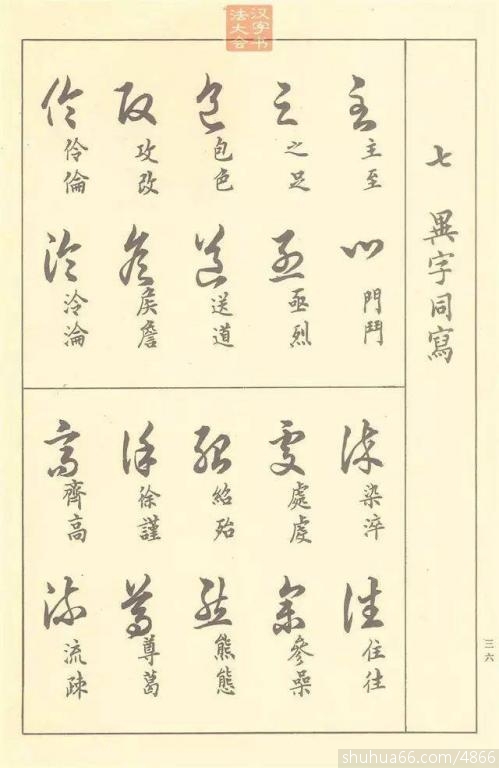 汉字书
法大会
七 異字同寫
主至
之足
包色
攻改
伶倫
門鬥
亟烈
送道
侯詹
泠淪
染淬
處虔
紹殆
徐謹
齊高
住往
參喿
熊態
尊葛
流疎
三六
shuhua66.com/4866